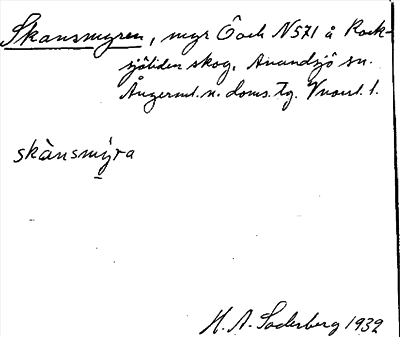 Skansmyren, myr Ö och N 571 å Rock-
sjöliden skog. Anundsjö sn.
Ångerml. n. doms. tg. Vnorrl. l.
skànsmýra
H. A. Söderberg 1932